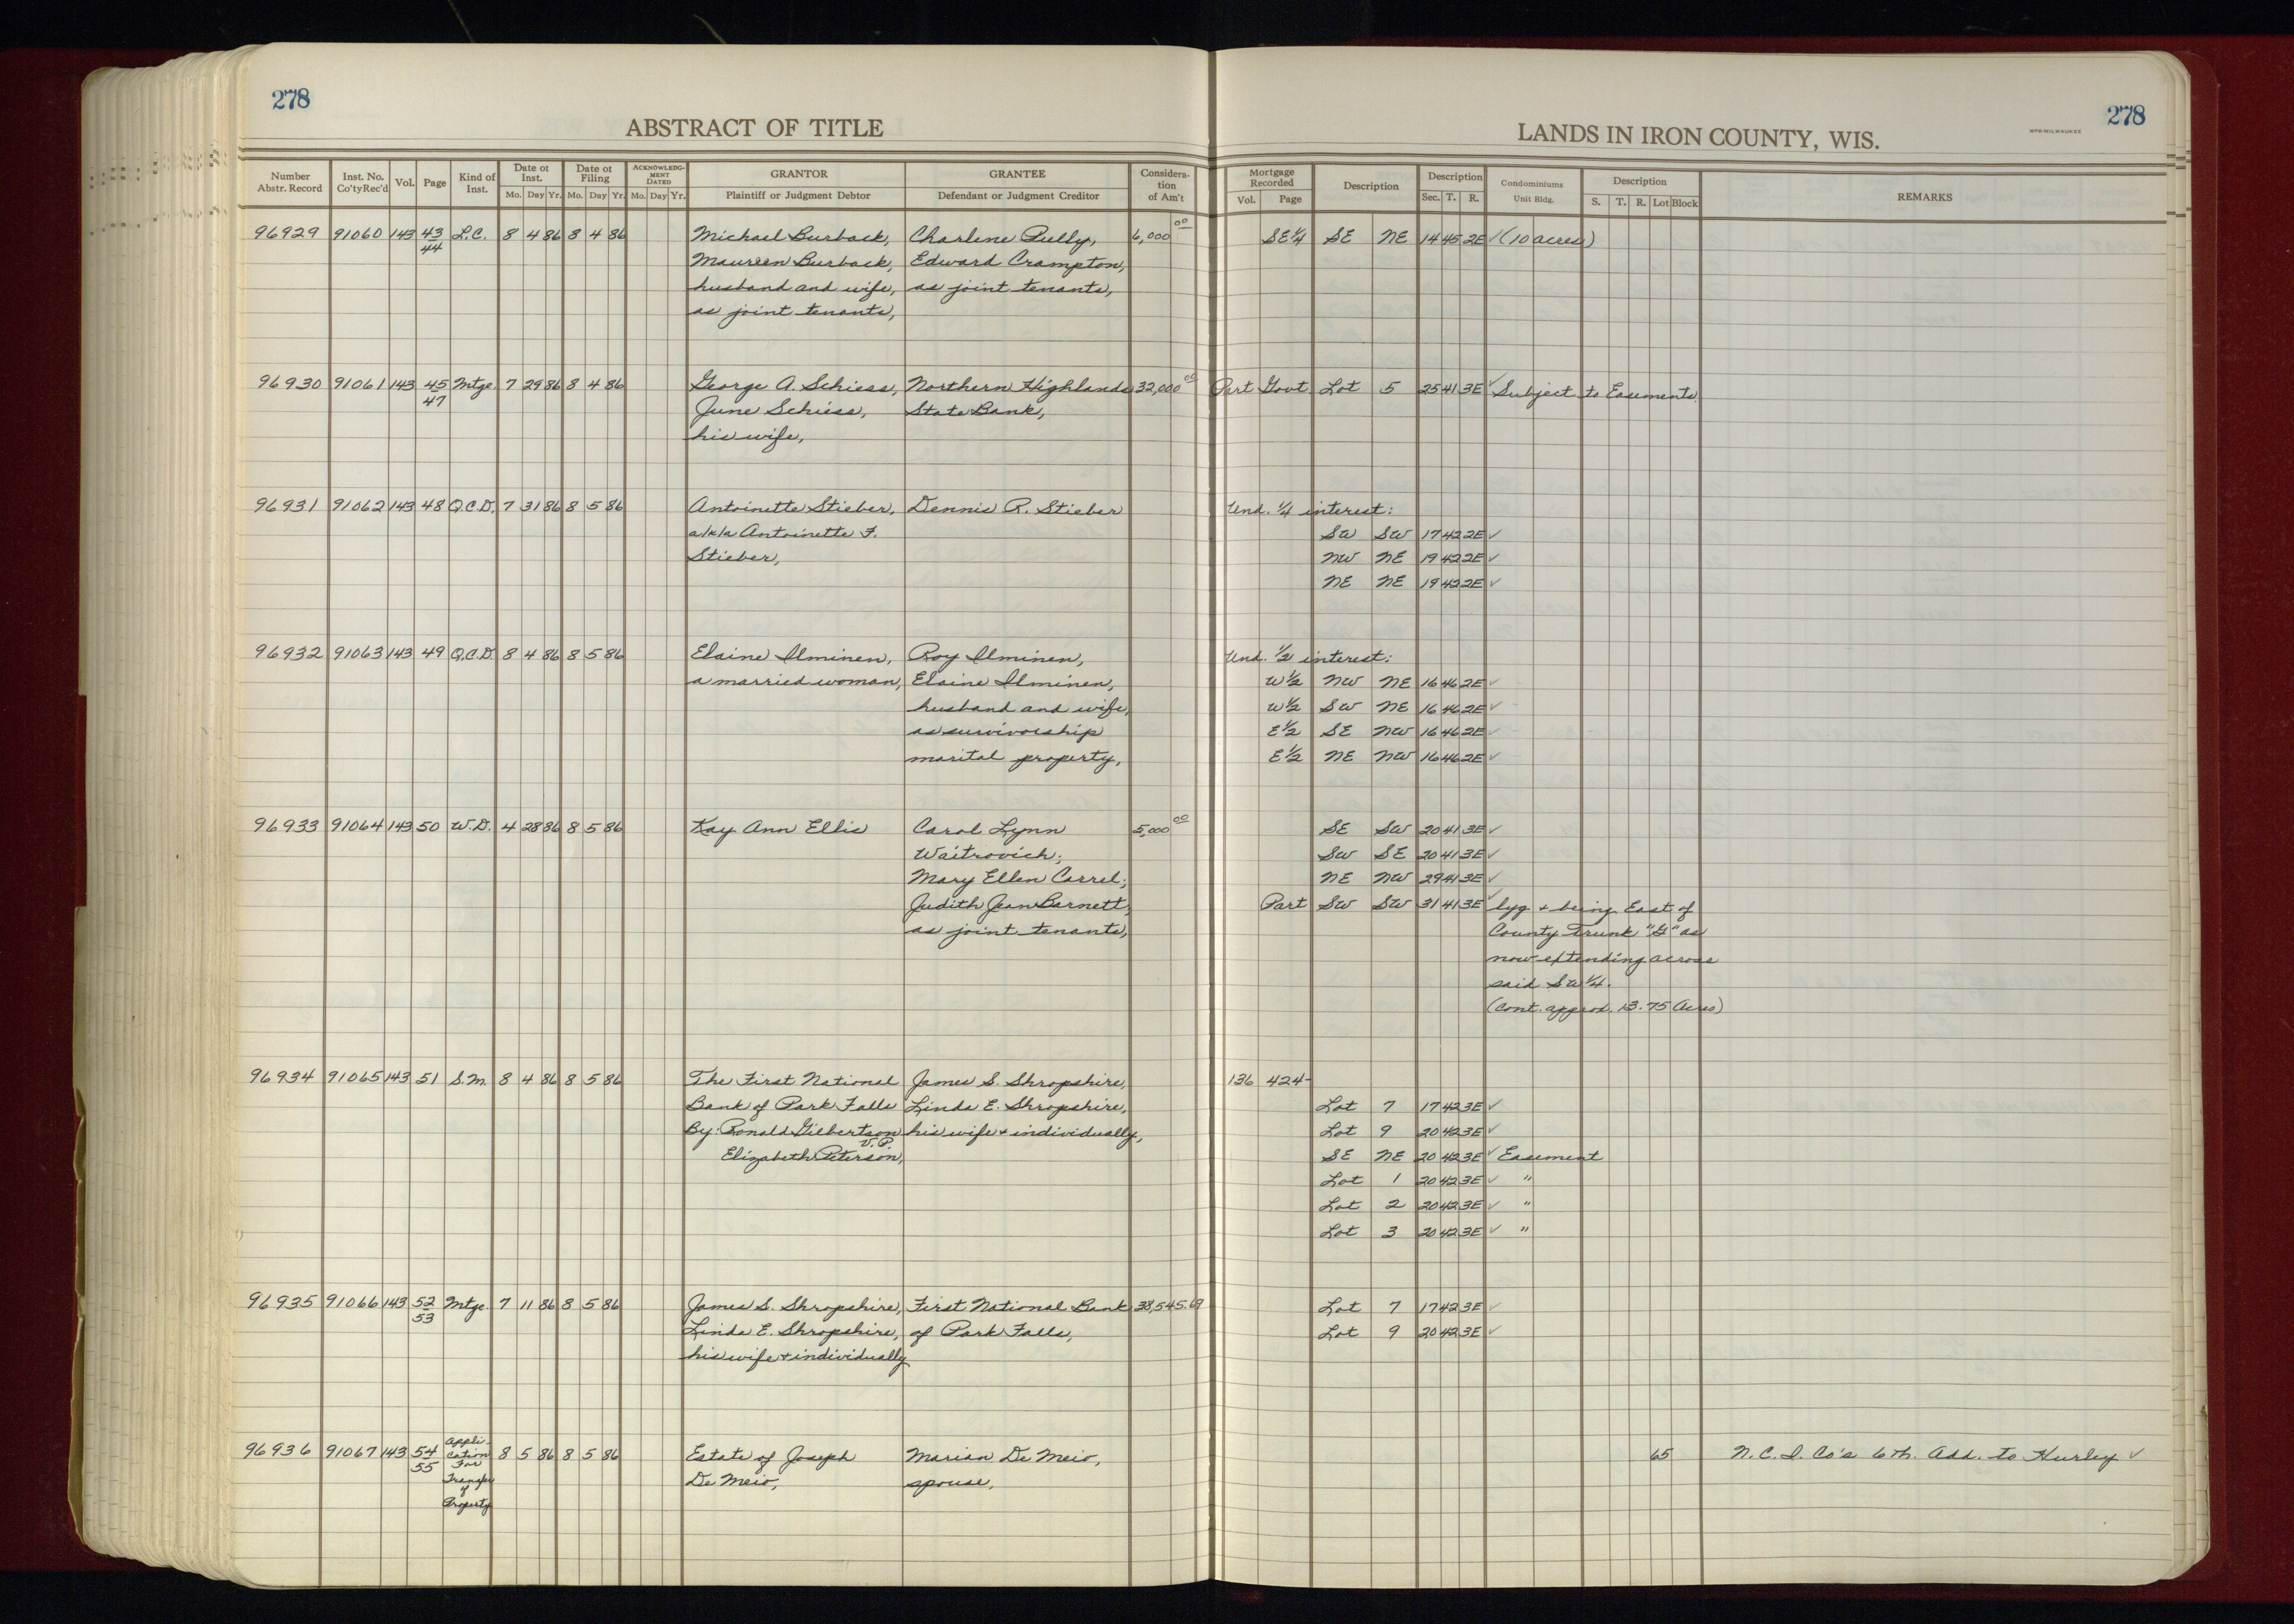 278
ABSTRACT OF TITLE
Number Abstr. Record | Inst. No. Co'ty Rec'd | Vol. | Page | Kind of Inst. | Date of Inst. Mo. Day Yr. | Date of Filing Mo. Day Yr. | ACKNOWLEDGMENT DATED Mo. Day Yr. | GRANTOR Plaintiff or Judgment Debtor | GRANTEE Defendant or Judgment Creditor | Consideration of Am't
278
MPB-MILWAUKEE
LANDS IN IRON COUNTY, WIS.
Mortgage Recorded Vol. Page | Description | Description Sec. T. R. | Condominiums Unit Bldg. | Description S. T. R. Lot Block | REMARKS
96929 91060 143 43/44 L.C. 8 4 86 8 4 86 Michael Burback, Charlene Pully, 6,000 00 SE 1/4 SE NE 14 45 2E ✓ (10 acres)
Maureen Burback, Edward Crampton,
husband and wife, as joint tenants,
as joint tenants,
96930 91061 143 45/47 Mtge. 7 29 86 8 4 86 George A. Schiess, Northern Highlands 32,000 00 Part Govt. Lot 5 25 41 3E ✓ Subject to Easements.
June Schiess, State Bank,
his wife,
96931 91062 143 48 Q.C.D. 7 31 86 8 5 86 Antoinette Stieber, Dennis R. Stieber Und. 1/4 interest:
a/k/a Antoinette F. SW SW 17 42 2E ✓
Stieber, NW NE 19 42 2E ✓
NE NE 19 42 2E ✓
96932 91063 143 49 Q.C.D. 8 4 86 8 5 86 Elaine Ilminen, Roy Ilminen, Und. 1/2 interest:
a married woman, Elaine Ilminen, W 1/2 NW NE 16 46 2E ✓
husband and wife, W 1/2 SW NE 16 46 2E ✓
as survivorship E 1/2 SE NW 16 46 2E ✓
marital property, E 1/2 NE NW 16 46 2E ✓
96933 91064 143 50 W.D. 4 28 86 8 5 86 Kay Ann Ellis Carol Lynn 5,000 00 SE SW 20 41 3E ✓
Waitrovich; SW SE 20 41 3E ✓
Mary Ellen Correl; NE NW 29 41 3E ✓
Judith Jean Barnett, Part SW SW 31 41 3E ✓ lyg + being East of
as joint tenants, County Trunk "G" as
now extending across
said SW 1/4.
(Cont. approx. 13.75 Acres)
96934 91065 143 51 S.M. 8 4 86 8 5 86 The First National James S. Shropshire, 136 424-
Bank of Park Falls Linda E. Shropshire, Lot 7 17 42 3E ✓
By: Ronald Gilbertson his wife + individually, Lot 9 20 42 3E ✓
V.P.
Elizabeth Peterson, SE NE 20 42 3E ✓ Easement
Lot 1 20 42 3E ✓ "
Lot 2 20 42 3E ✓ "
Lot 3 20 42 3E ✓ "
96935 91066 143 52/53 Mtge 7 11 86 8 5 86 James S. Shropshire, First National Bank 38,545.69 Lot 7 17 42 3E ✓
Linda E. Shropshire, of Park Falls, Lot 9 20 42 3E ✓
his wife + individually
96936 91067 143 54/55 Application For Transfer of Property 8 5 86 8 5 86 Estate of Joseph Marian De Meio, 65 N.C.I. Co's 6th. Add. to Hurley ✓
De Meio, spouse,